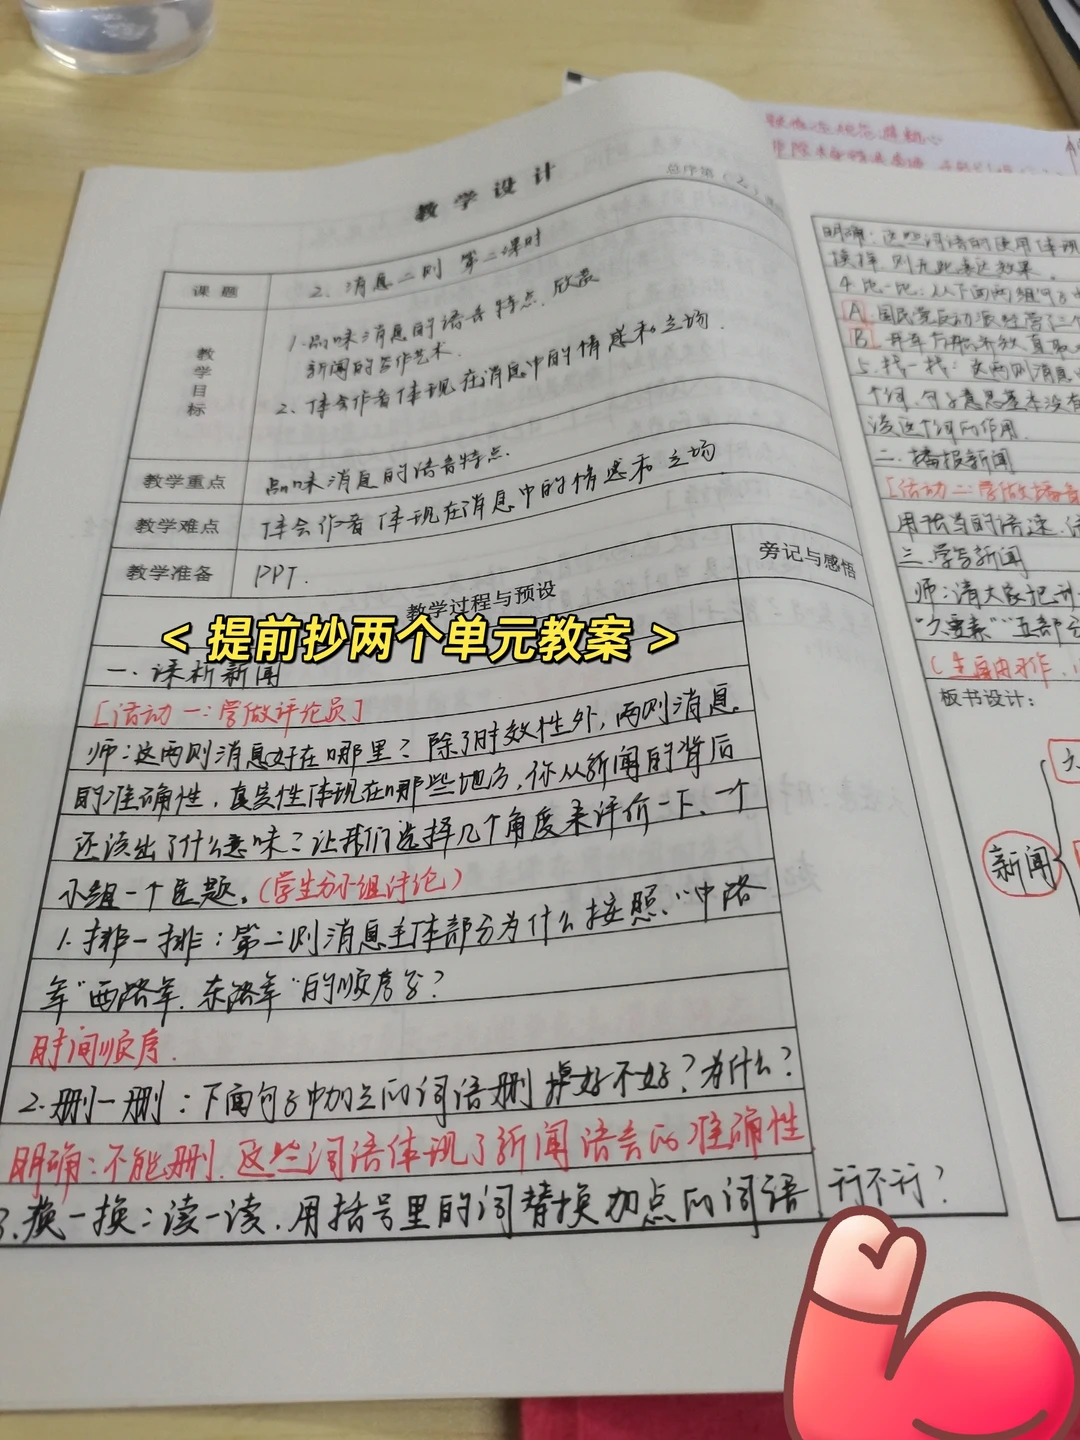 教学设计
总序第（2）课时
课题
2. 消息二则 第二课时
教学目标
1. 品味消息的语言特点、欣赏
新闻的写作艺术.
2. 体会作者体现在消息中的情感和立场.
教学重点
品味消息的语言特点.
教学难点
体会作者体现在消息中的情感和立场.
教学准备
PPT.
教学过程与预设
旁记与感悟
< 提前抄两个单元教案 >
一. 课析新闻
[活动一：学做评论员]
师：这两则消息好在哪里？除了时效性外，两则消息
的准确性，真实性体现在哪些地方，你从新闻的背后
还读出了什么意味？让我们选择几个角度来评价一下、一个
小组一个选题。(学生分小组讨论)
1. 排一排：第二则消息主体部分为什么按照“中路
军”西路军、东路军”的顺序写？
时间顺序.
2. 删一删：下面句子中加点的词语删掉好不好？为什么？
明确：不能删. 这些词语体现了新闻语言的准确性
3. 换一换：读一读. 用括号里的词替换加点的词语 行不行？
明确：这些词语的使用体现
换掉，则无此表达效果.
4. 比一比：从下面两组句子中
A. 国民党反动派经营了三个
B.
5. 找一找：这两则消息中
个词，句子意思基本没有
谈这个词的作用.
二. 播报新闻
[活动二：学做播音
用恰当的语速、
三. 学写新闻
师：请大家把
“六要素”“五部分
(生自由习作.
板书设计：
新闻
六